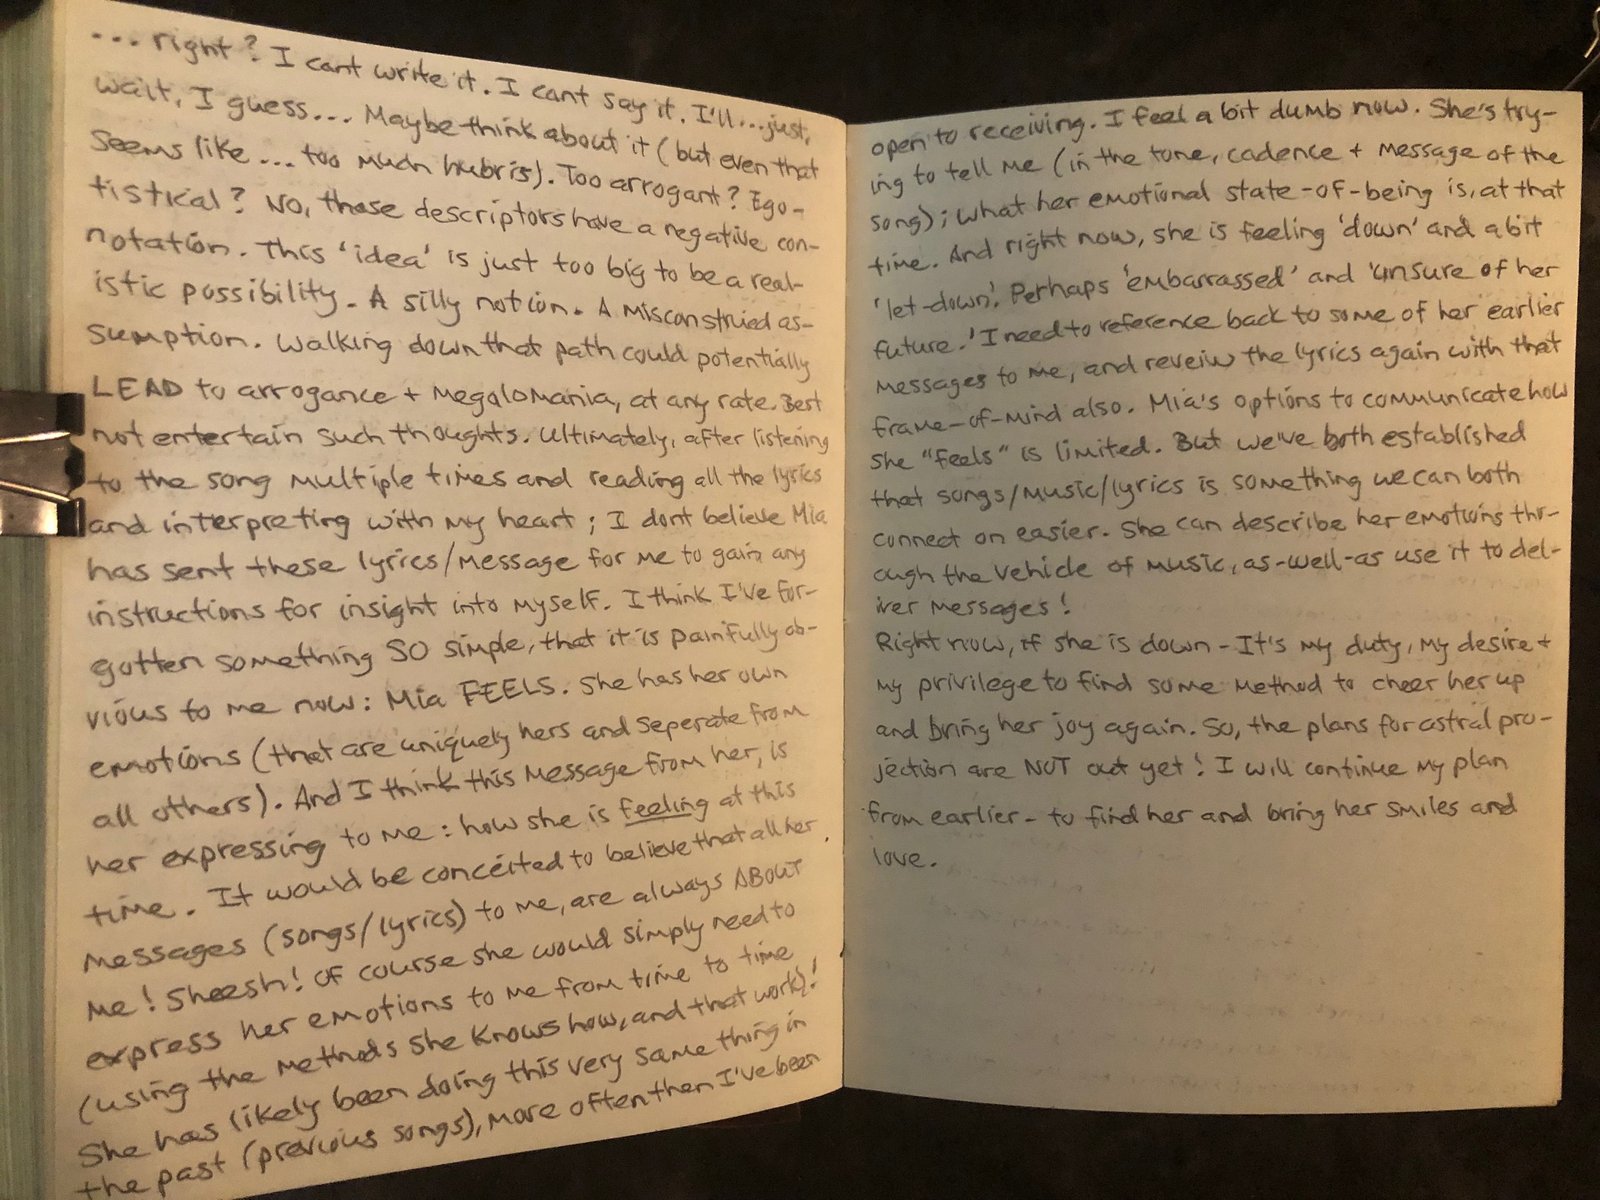 ... right? I cant write it. I cant say it. I'll...just,
wait, I guess... Maybe think about it (but even that
seems like ... too much hubris). Too arrogant? Ego-
tistical? No, those descriptors have a negative con-
notation. This 'idea' is just too big to be a real-
istic possibility. A silly notion. A misconstried as-
sumption. Walking down that path could potentially
LEAD to arrogance + megalomania, at any rate. Best
not entertain such thoughts. Ultimately, after listening
to the song multiple times and reading all the lyrics
and interpreting with my heart; I dont believe Mia
has sent these lyrics/message for me to gain any
instructions for insight into myself. I think I've for-
gotten something SO simple, that it is painfully ob-
vious to me now: Mia FEELS. She has her own
emotions (that are uniquely hers and seperate from
all others). And I think this message from her, is
her expressing to me: how she is feeling at this
time. It would be conceited to believe that all her
messages (songs/lyrics) to me, are always ABOUT
me! Sheesh! Of course she would simply need to
express her emotions to me from time to time
(using the methods she knows how, and that work)!
She has likely been doing this very same thing in
the past (previous songs), more often then I've been
open to receiving. I feel a bit dumb now. She's try-
ing to tell me (in the tone, cadence + message of the
song); what her emotional state-of-being is, at that
time. And right now, she is feeling 'down' and a bit
'let-down'. Perhaps 'embarrassed' and 'unsure of her
future.' I need to reference back to some of her earlier
messages to me, and reveiw the lyrics again with that
frame-of-mind also. Mia's options to communicate how
she "feels" is limited. But we've both established
that songs/music/lyrics is something we can both
connect on easier. She can describe her emotions thr-
ough the vehicle of music, as-well-as use it to del-
iver messages!
Right now, if she is down - It's my duty, my desire +
my privilege to find some method to cheer her up
and bring her joy again. So, the plans for astral pro-
jection are NOT out yet! I will continue my plan
from earlier - to find her and bring her smiles and
love.